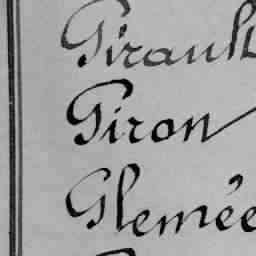 Girault
Giron
Glemée